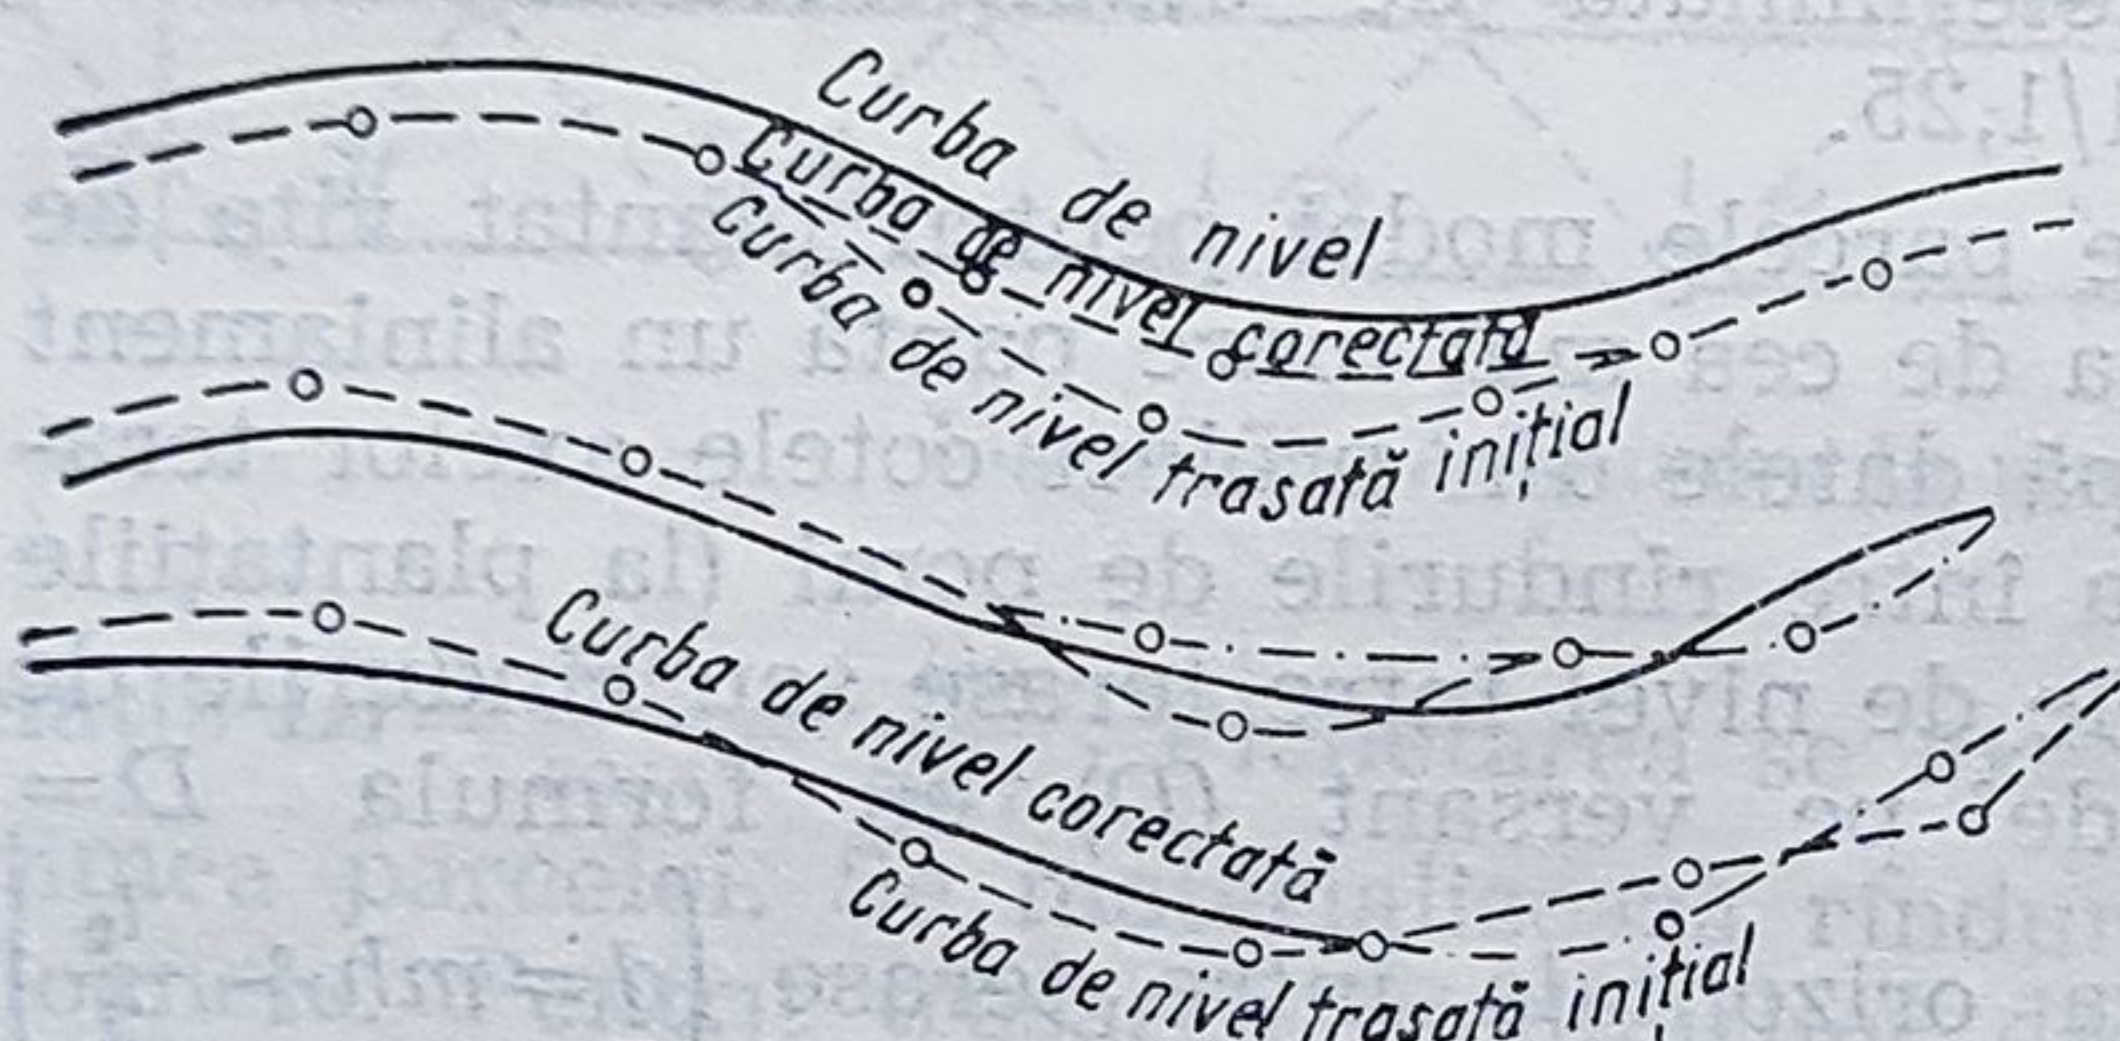 Curba de nivel
Curba de nivel corectată
Curba de nivel trasată inițial
Curba de nivel corectată
Curba de nivel trasată inițial